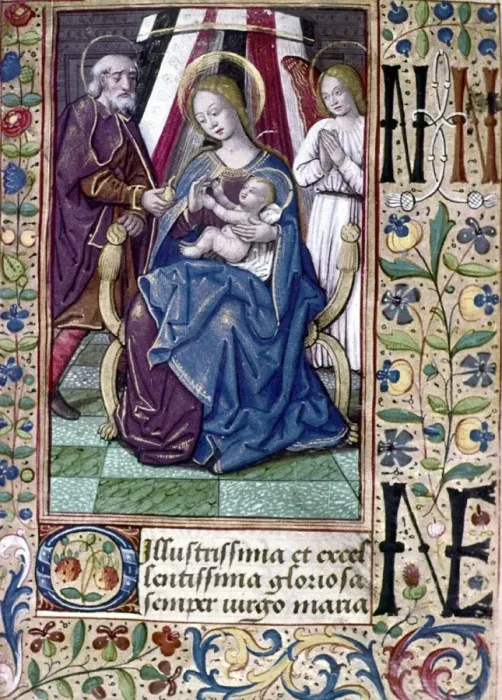 N
O Illustrissima et excel
lentissima gloriosa
semper uirgo maria
N E